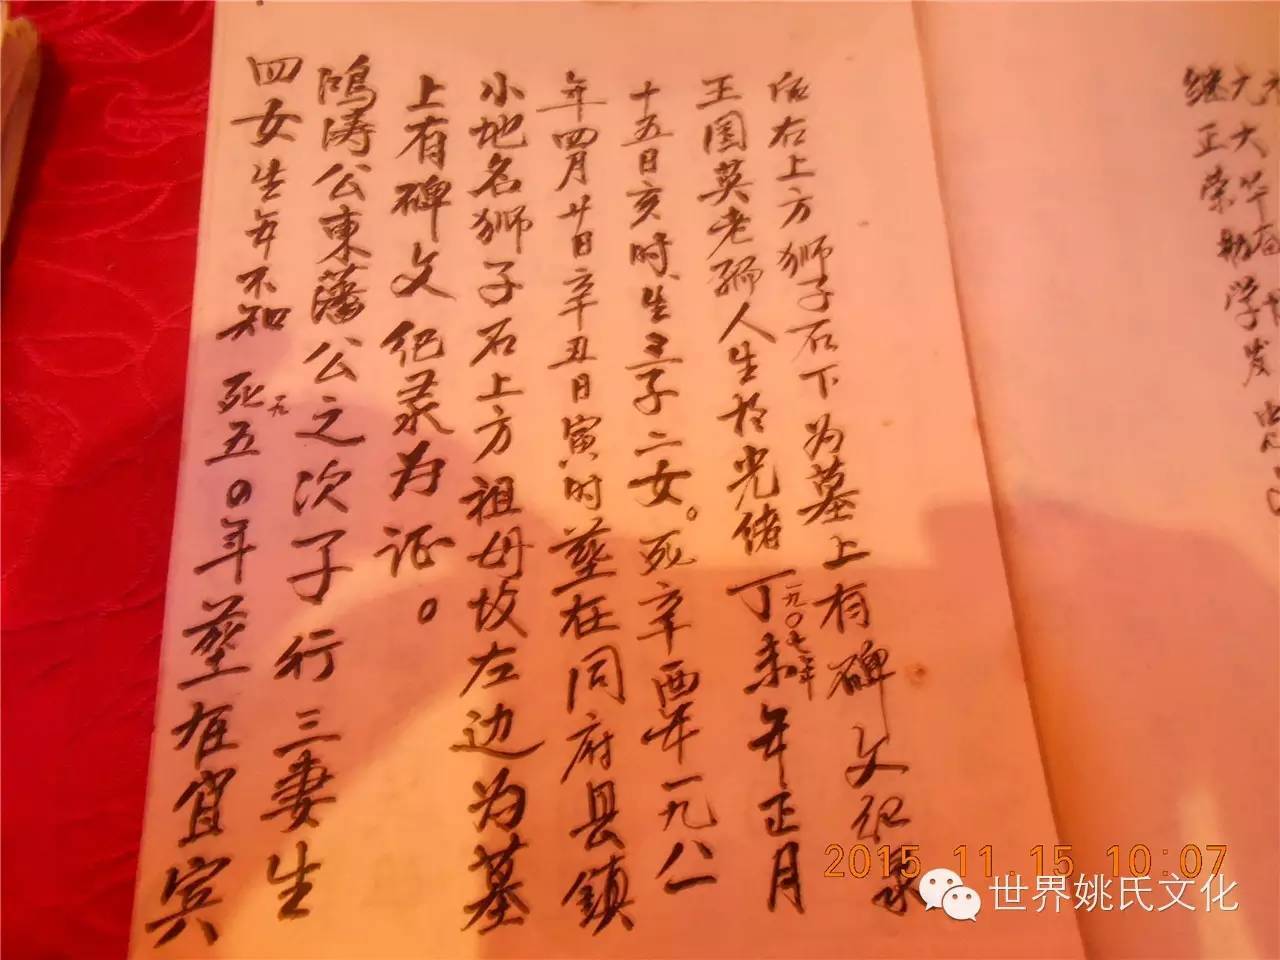 后右上方狮子石下为墓上有碑文纪录
王国英老孺人生於光绪丁未年正月
一九0七年
十五日亥时生三子二女。死辛酉年一九八一
年四月廿日辛丑日寅时葬在同府县镇
小地名狮子石上方祖母坟左边为墓
上有碑文纪录为证。
鸿涛公東藩公之次子行三妻生
四女生年不知死五0年葬在宜宾
一九
继正荣
学
2015.11.15 10:07
世界姚氏文化